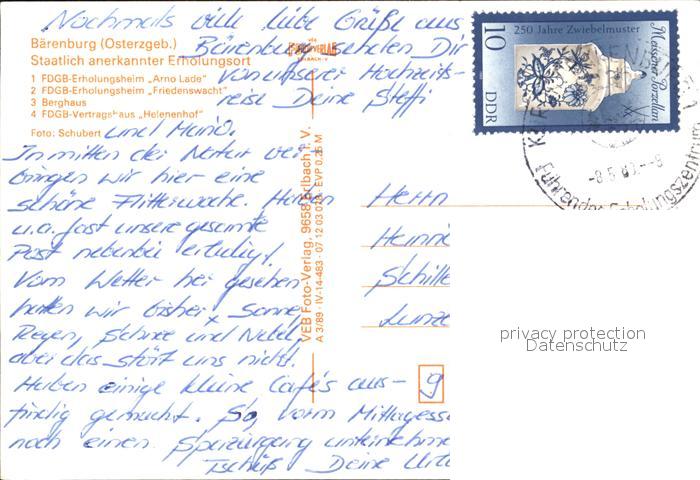 Nochmals viele liebe Grüße aus
Bärenburg senden Dir
von unserer Hochzeits-
reise Deine Steffi
und Mario.
Bärenburg (Osterzgeb.)
Staatlich anerkannter Erholungsort
1 FDGB-Erholungsheim „Arno Lade“
2 FDGB-Erholungsheim „Friedenswacht“
3 Berghaus
4 FDGB-Vertragshaus „Helenenhof“
Foto: Schubert
Inmitten der Natur ver-
bringen wir hier eine
schöne Flitterwoche. Haben
u.a. fast unsere gesamte
Post nebenbei erledigt.
Vom Wetter her gesehen
hatten wir bisher Sonne,
Regen, Schnee und Nebel,
aber das stört uns nicht.
Haben einige kleine Cafés aus-
findig gemacht. So, vorm Mittagess
noch einen Spaziergang unternehme
Tschüß Deine
VEB Foto-Verlag, 9658 Erlbach i. V.
A 3/89 · IV-14-483 · 07 12 03 EVP 0,25 M
Herrn
Heinri
Schille
9
10
DDR
250 Jahre Zwiebelmuster
Meissener Porzellan
-8.5
Führendes Erholungszentrum
privacy protection
Datenschutz